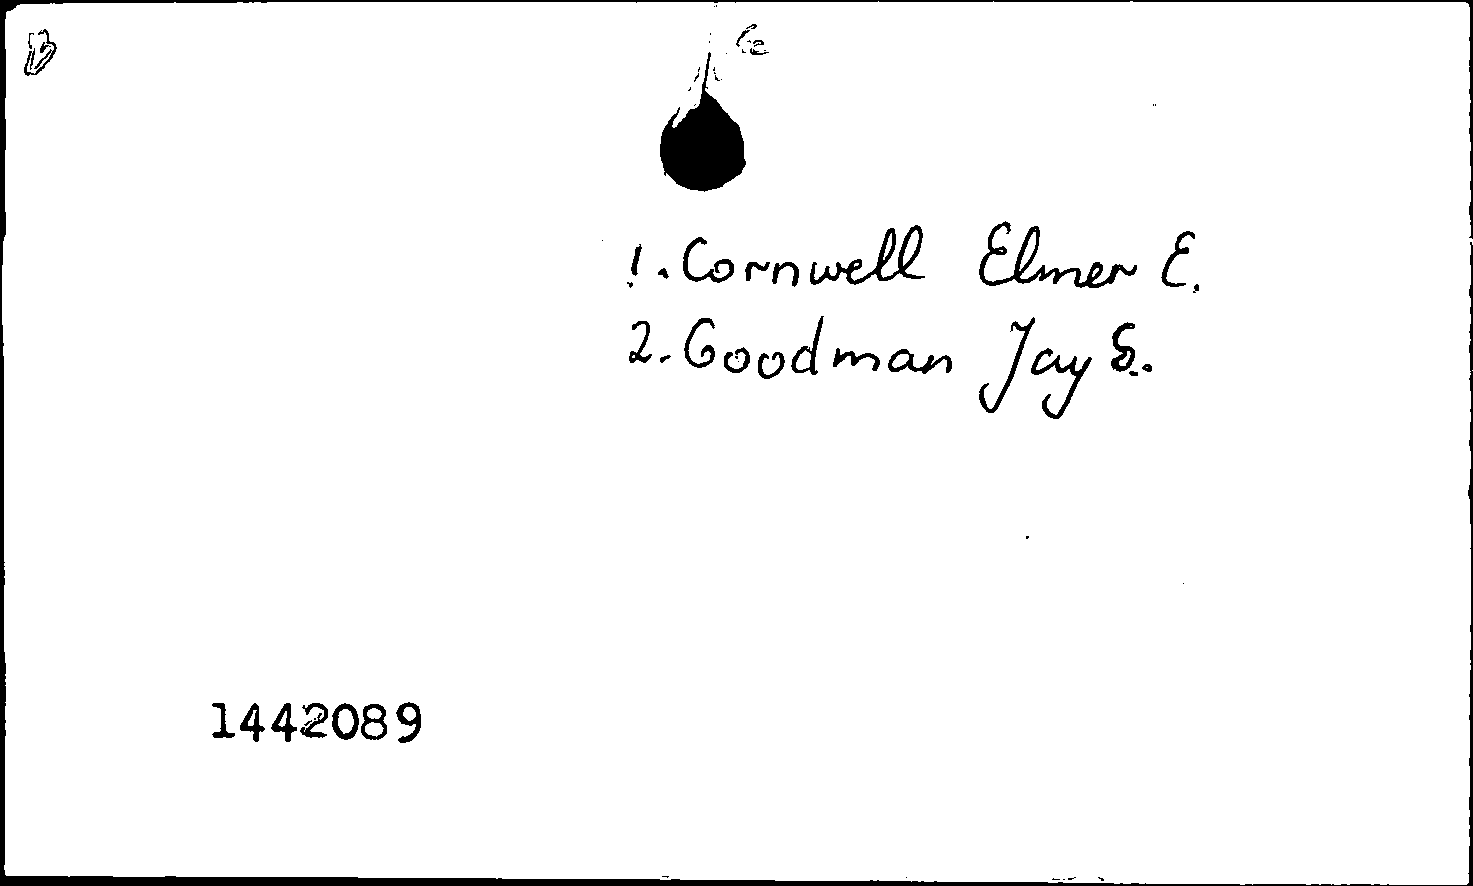 1. Cornwell Elmer E.
2. Goodman Jay S.
1442089